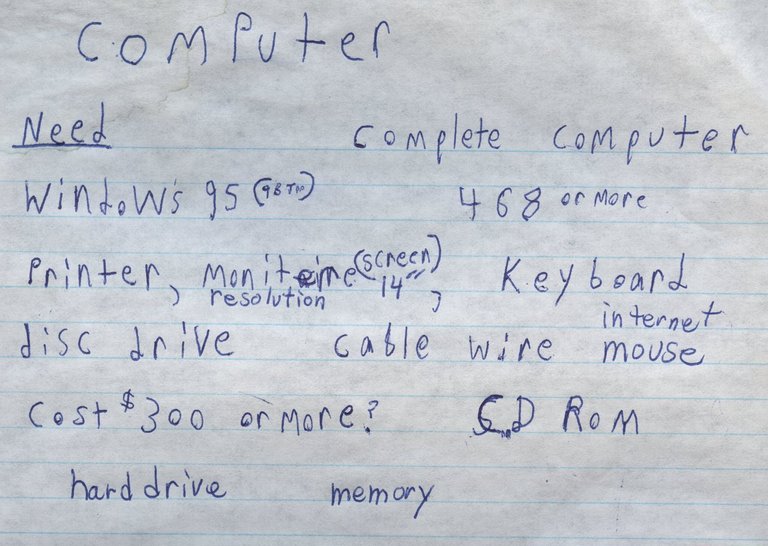 Computer
Need Complete Computer
Windows 95 468 or more
Printer, (screen) Keyboard
resolution 14" , internet
disc drive cable wire mouse
Cost $300 or more? CD ROM
hard drive memory